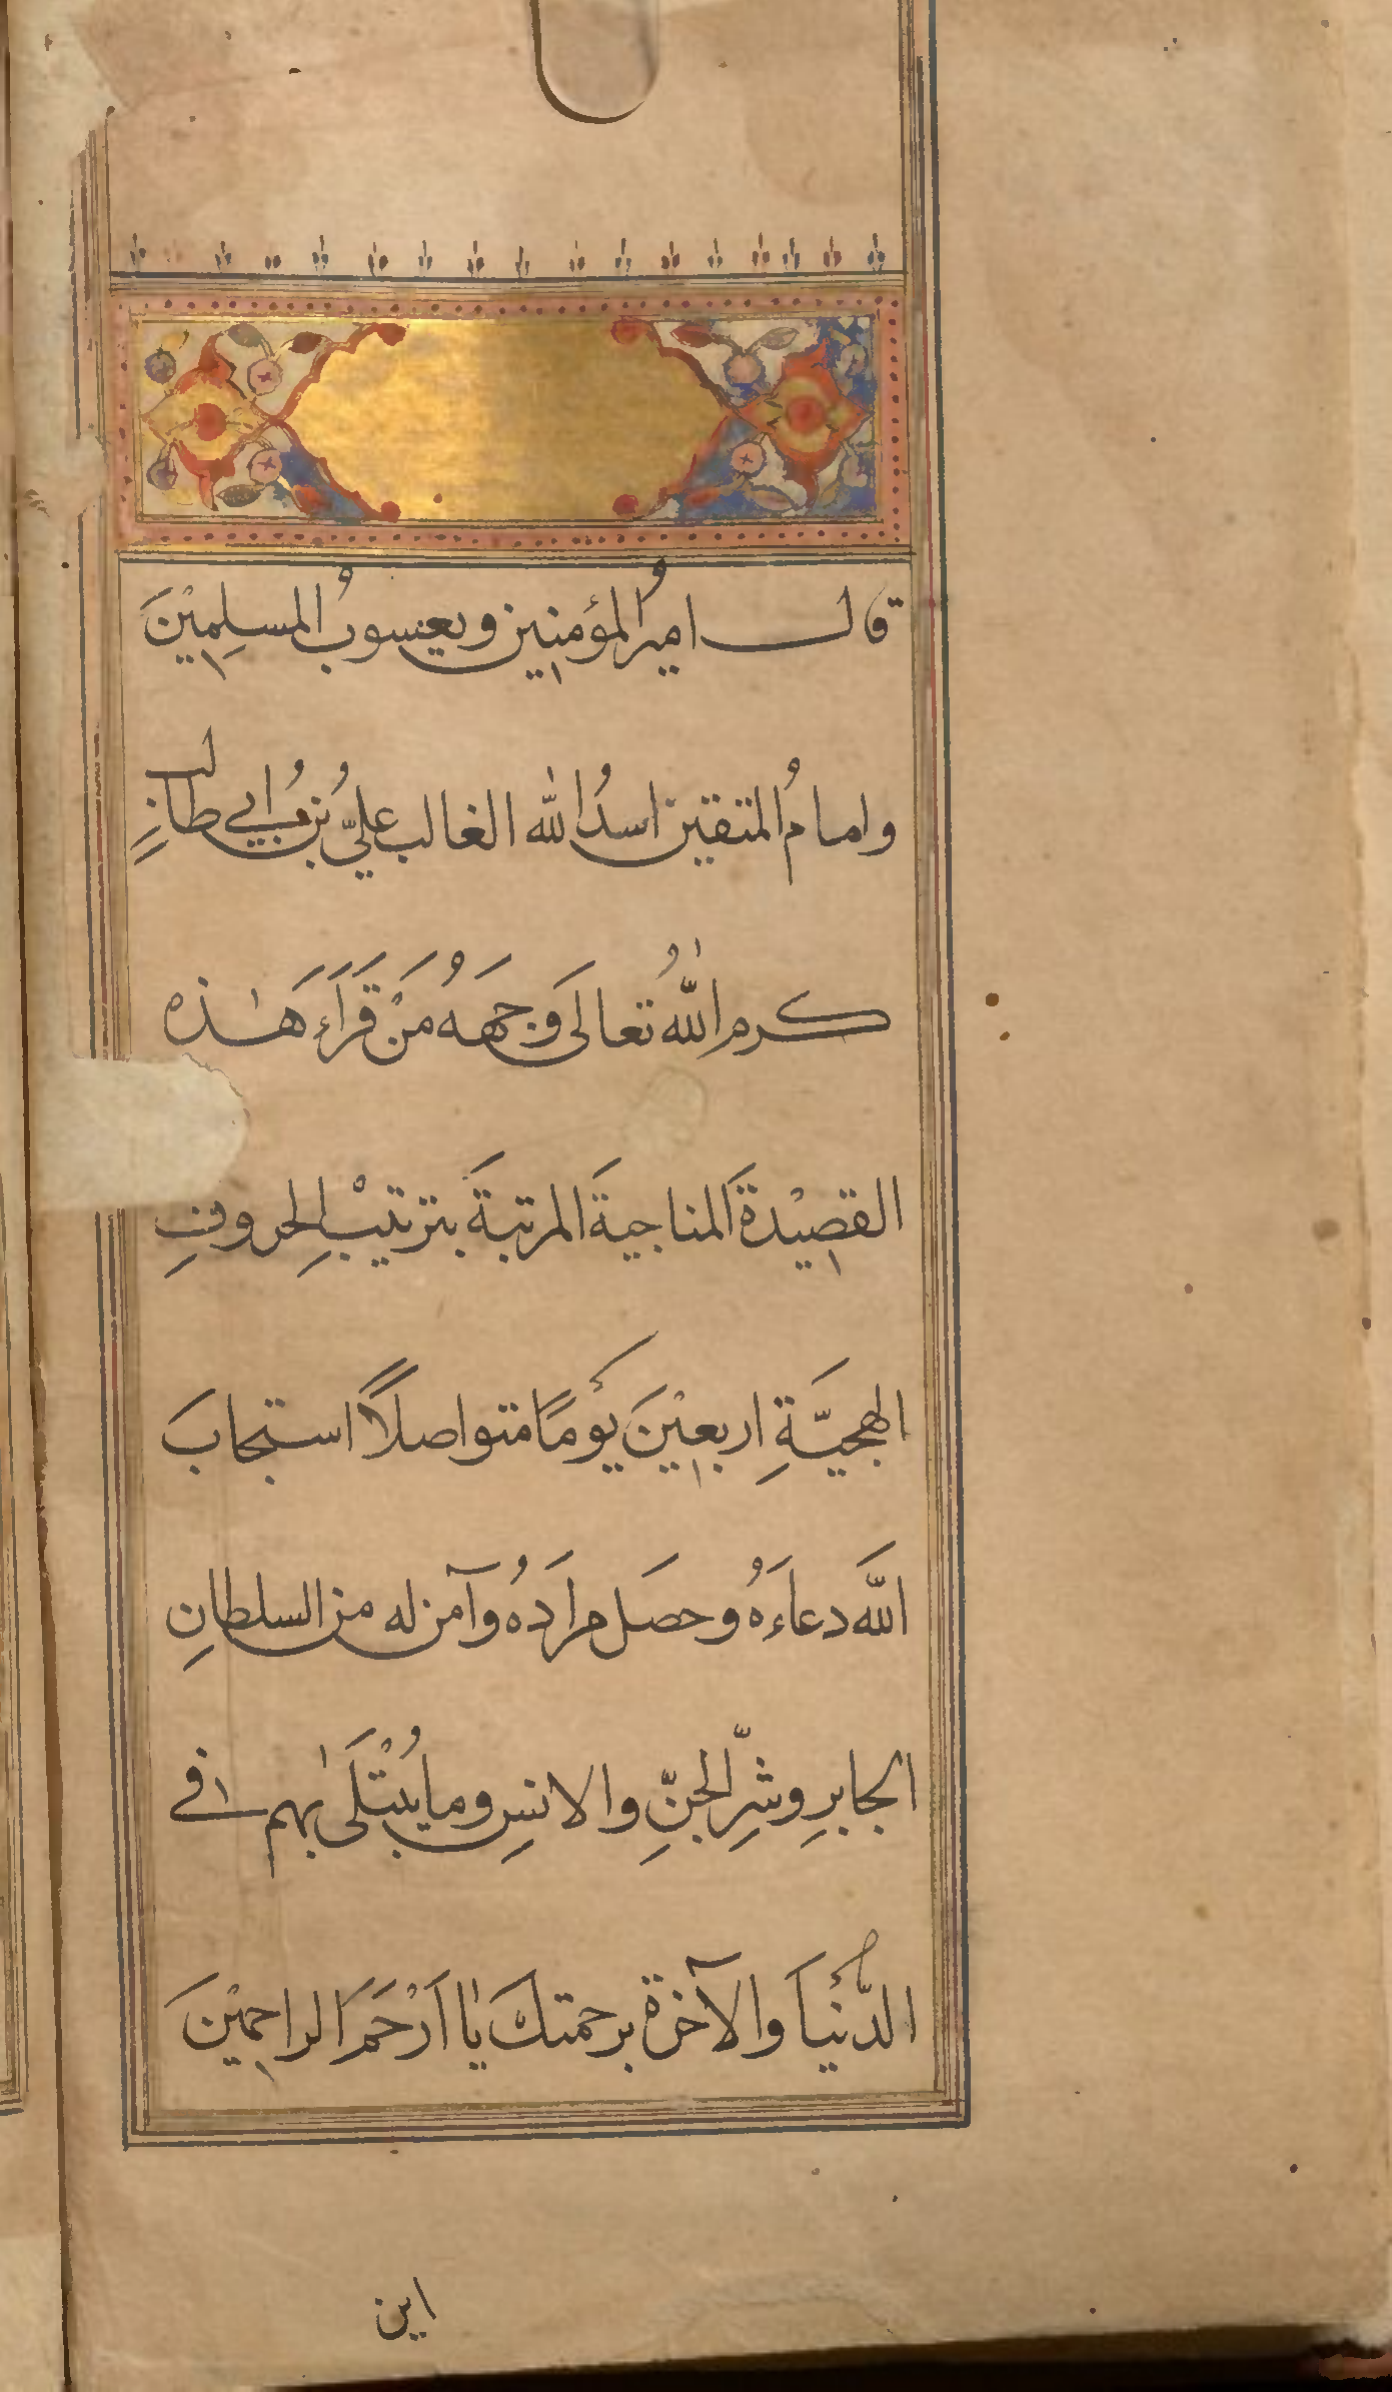 قال اميرُ المؤمنين ويعسوبُ المسلِمِيْنَ
وامامُ المتقين اسدُ الله الغالب عليُّ بنُ ابي طالبٍ
كرم اللّٰهُ تعالَى وَجهَهُ مَنْ قَرَاَءَ هَـٰذه
القصِيْدةَ المناجيةَ المرتبةَ بترتيْبِ الحروفِ
الهجيَّةِ اربعِيْنَ يَوْمًا متواصلاً استجابَ
اللَّه دعاَءَهُ وحصَل مراَدهُ وآمن له من السلطانِ
الجابرِ وشرِّ الجنِّ والانسِ وما يُبْتَلَىٰ بهم في
الدُّنْياَ والآخرة برحمتكَ يٰا اَرْحَمَ الراحمِيْنَ
اين